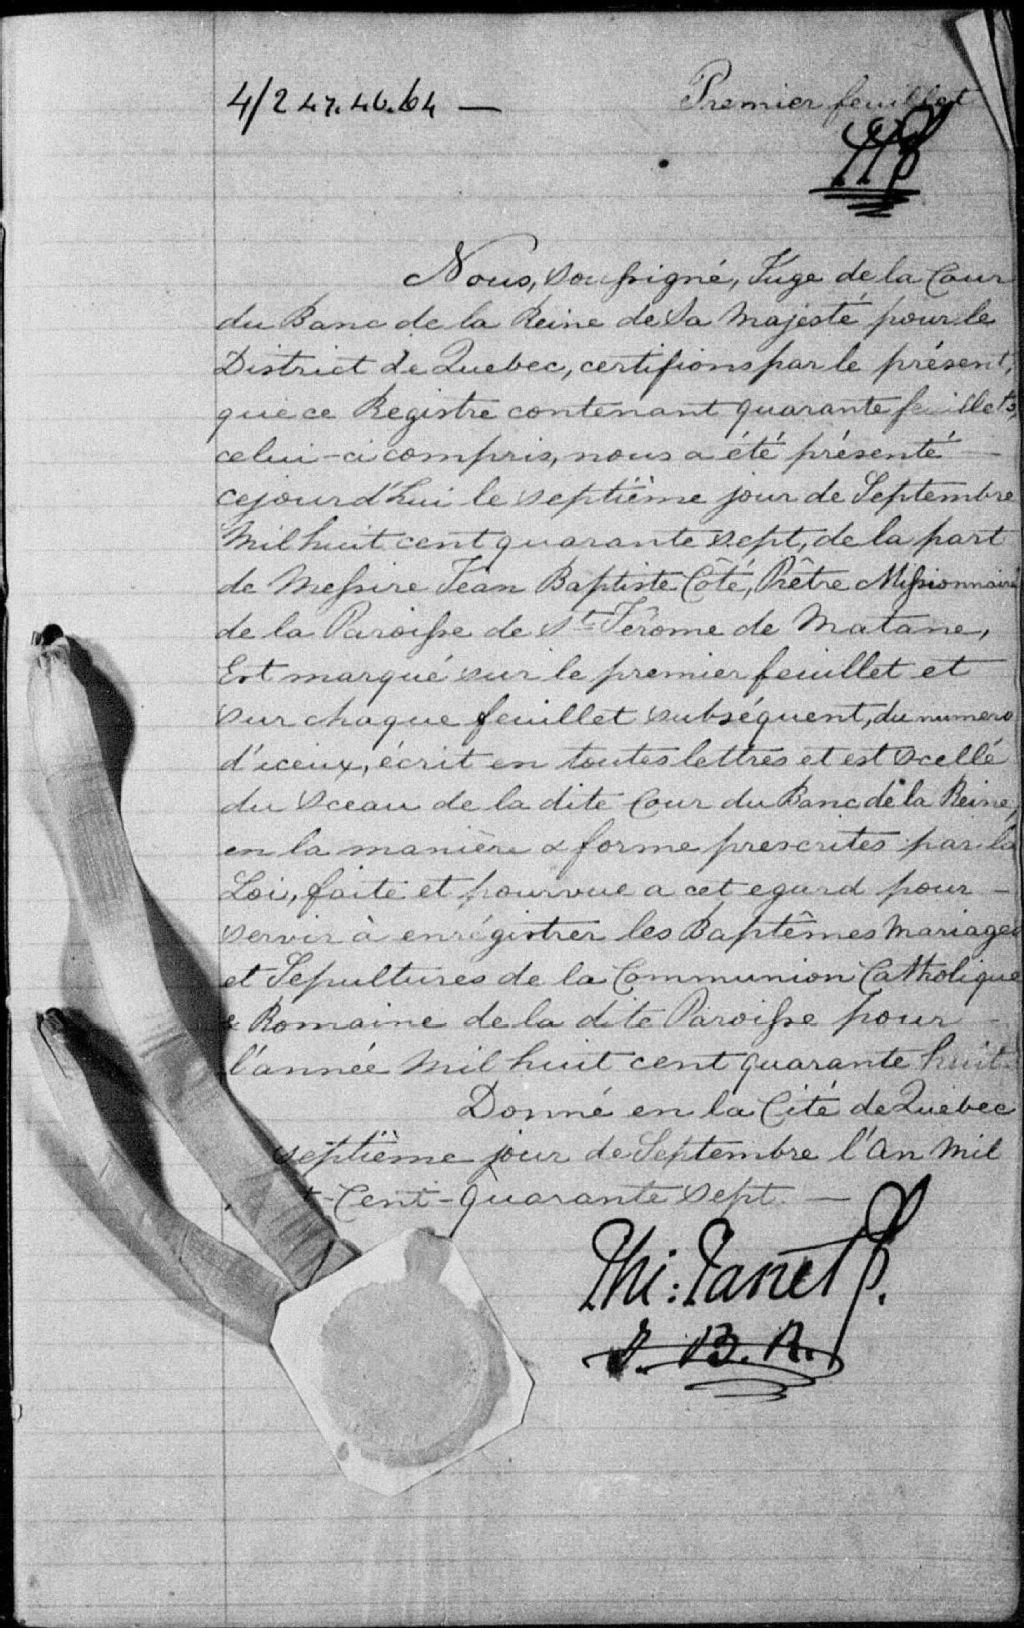 4/2 47.46.64 —
Premier feuillet
Nous, soussigné, Juge de la Cour
du Banc de la Reine de Sa Majesté pour le
District de Quebec, certifions par le présent,
que ce Registre contenant quarante feuillets,
celui-ci compris, nous a été présenté —
cejourd'hui le septième jour de Septembre
Mil huit cent quarante sept, de la part
de Messire Jean Baptiste Côté, Prêtre Missionnaire
de la Paroisse de St Jérome de Matane,
Est marqué sur le premier feuillet et
sur chaque feuillet subséquent, du numero
d'iceux, écrit en toutes lettres et est scellé
du sceau de la dite Cour du Banc de la Reine,
en la manière & forme prescrites par la
Loi, faite et pourvue a cet egard pour —
servir à enrégistrer les Baptêmes Mariages
et Sepultures de la Communion Catholique
& Romaine de la dite Paroisse pour —
l'année Mil huit cent quarante huit.
Donné en la Cité de Quebec
septième jour de Septembre l'An Mil
-Cent-Quarante sept. —
J. B. R.